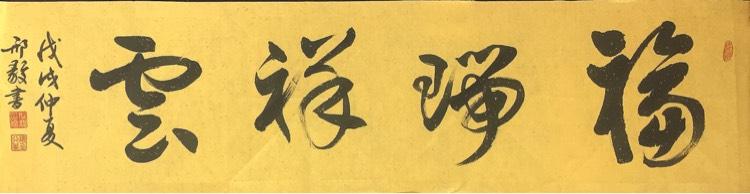 福瑞祥雲
戊戌仲夏
邢毅書